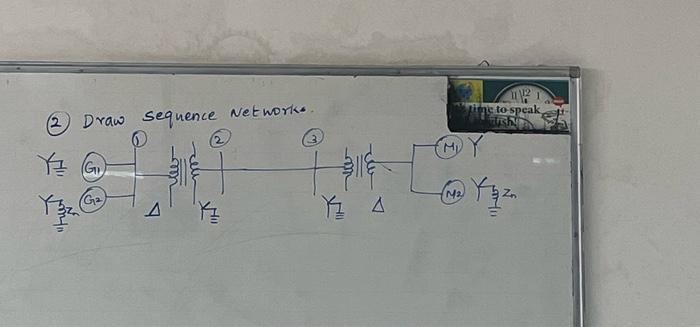 ② Draw Sequence Networks.
① ② ③
G1 M1 Y
G2 Zn M2 Zn
Δ Δ
time to speak